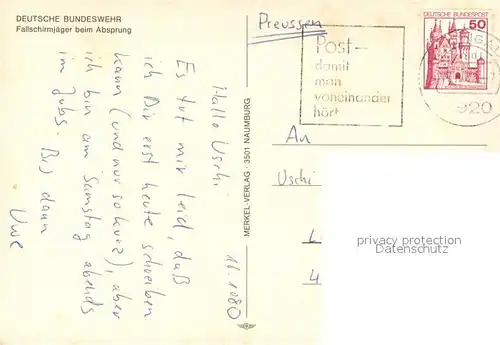 DEUTSCHE BUNDESWEHR
Fallschirmjäger beim Absprung
16.1080
Hallo Uschi
Es tut mir leid, daß
ich Dir erst heute schreiben
kann (und nur so kurz), aber
ich bin am Samstag abends
im Jubs. Bis dann
Uwe
MERKEL-VERLAG · 3501 NAUMBURG
Preussen
Post-
damit
man
voneinander
hört
DEUTSCHE BUNDESPOST
50
920
An
Uschi
L
4
privacy protection
AnsichtsKarten-Center.de